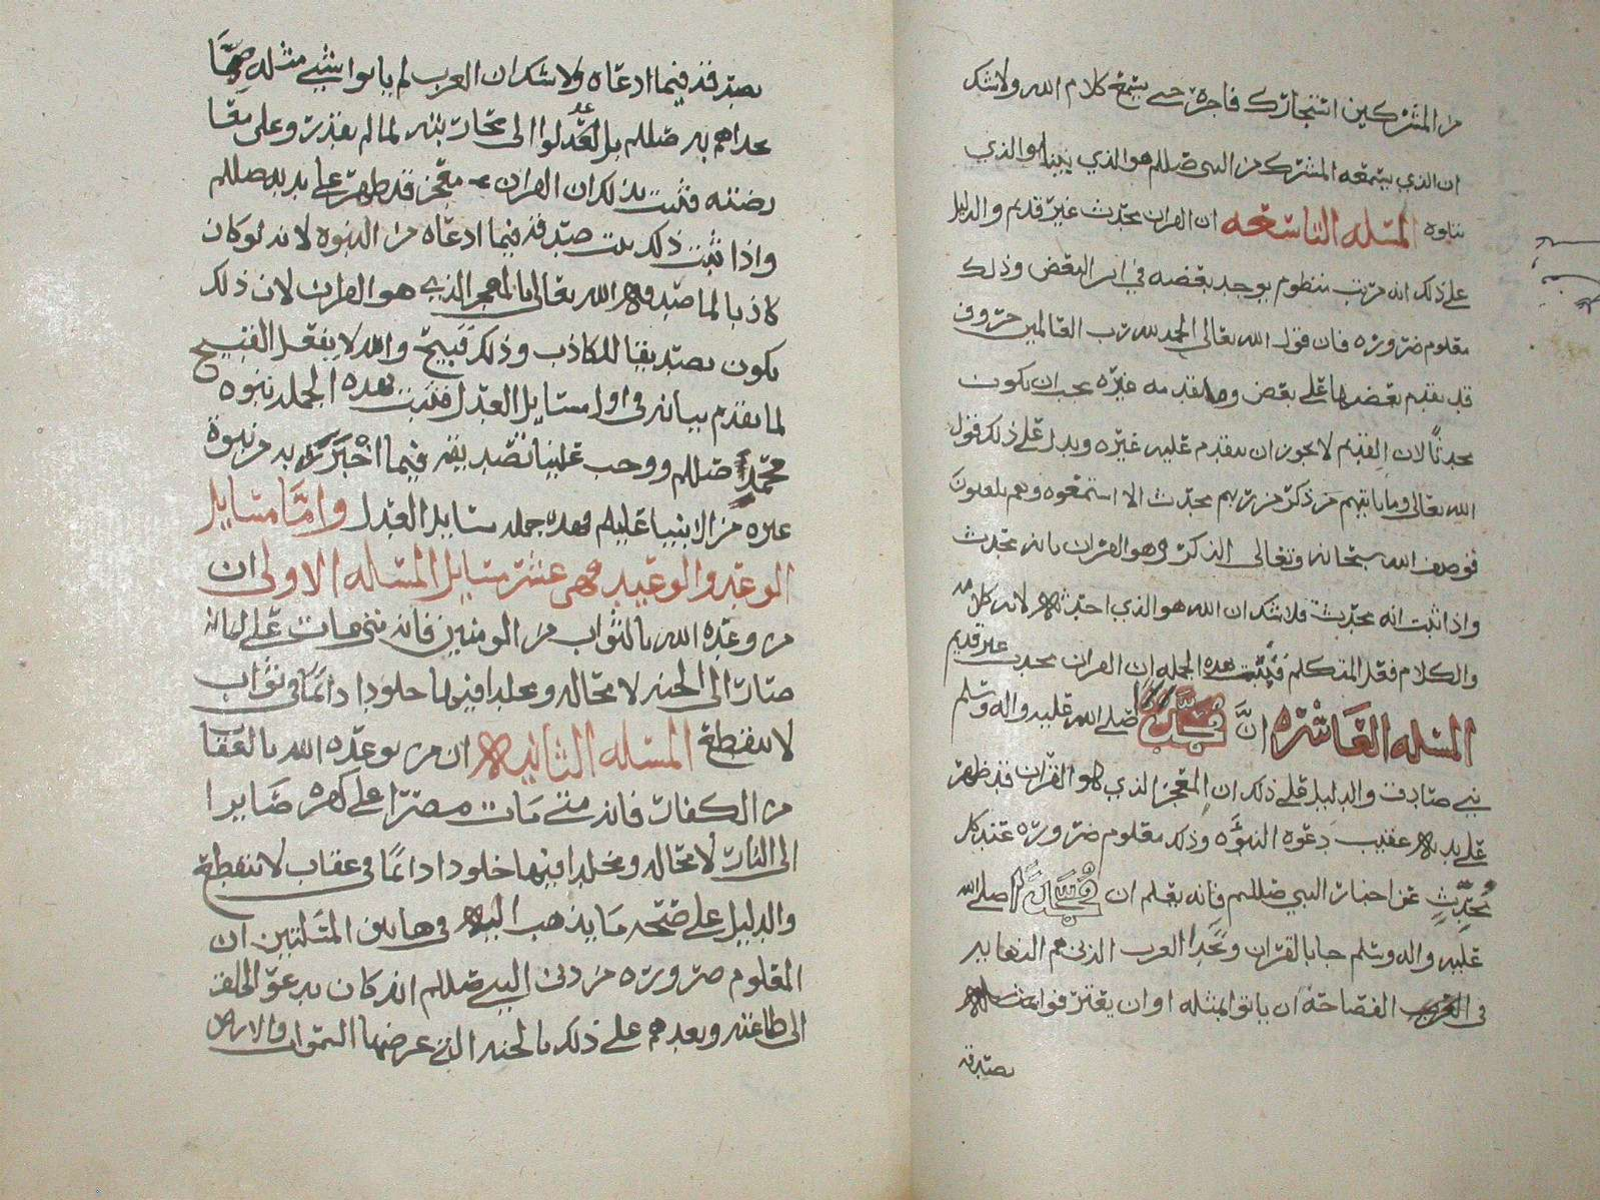 من المشركين استجارك فاجره حتى يسمع كلام الله ولا شك
ان الذي يسمعه المشرك من النبي صللم هو الذي بيننا والذي
نتلوه المسله التاسعه ان القران محدث غير قديم والدليل
على ذلك انه مرتب منظوم يوجد بعضه في اثر البعض وذلك
معلوم ضروره فان قول الله تعالى الحمد لله رب العالمين حروف
قد تقدم بعضها على بعض وما تقدمه غيره يجب ان يكون
محدثا لان القديم لا يجوز ان يتقدم عليه غيره ويدل على ذلك قول
الله تعالى وما ياتيهم من ذكر من ربهم محدث الا استمعوه وهم يلعبون
فوصف الله سبحانه وتعالى الذكر وهو القران بانه محدث
واذا ثبت انه محدث فلا شك ان الله هو الذي احدثه لانه كلامه
والكلام فعل المتكلم فثبت بهذه الجمله ان القران محدث غير قديم
المسله العاشره ان محمدا صلى الله عليه واله وسلم
نبي صادق والدليل على ذلك ان المعجز الذي هو القران قد ظهر
على يديه عقيب دعوه النبوه وذلك معلوم ضروره عند كل
محدث عن اخبار النبي صللم فانه يعلم ان محمدا صلى الله
عليه واله وسلم جا بالقران وتحدا العرب الذين هم النهايه
في الفصاحه ان ياتوا بمثله او ان يعترفوا
بصدقه
بصدقه فيما ادعاه ولا شك ان العرب لم ياتوا بشي مثله مما
تحداهم به صللم بل عدلوا الى محاربته لما لم يقدروا على معا
رضته فثبت بذلك ان القران معجز قد ظهر على يديه صللم
واذا ثبت ذلك ثبت صدقه فيما ادعاه من النبوه لانه لو كان
كاذبا لما صدقه الله تعالى بالمعجز الذي هو القران لان ذلك
يكون تصديقا للكاذب وذلك قبيح والله لا يفعل القبيح
لما تقدم بيانه في اول مسايل العدل فثبت بهذه الجمله نبوه
محمد صللم ووجب علينا تصديقه فيما اخبر به من نبوة
غيره من الانبيا عليهم فهذه جمله مسايل العدل واما مسايل
الوعد والوعيد فهي عشر مسايل المسله الاولى ان
من وعده الله بالثواب من المومنين فانه متى مات على ايمانه
صار الى الجنه لا محاله ومخلد فيها خلودا دائما في ثواب
لا ينقطع المسله الثانيه ان من توعده الله بالعقا
من الكفار فانه متى مات مصرا على كفره صايرا
الى النار لا محاله ومخلد فيها خلودا دائما في عقاب لا ينقطع
والدليل على صحه ما يذهب اليه في هاتين المسلتين ان
المعلوم ضروره من دين النبي صللم انه كان يدعو الخلق
الى طاعته ويعدهم على ذلك بالجنه التي عرضها السموات والارض